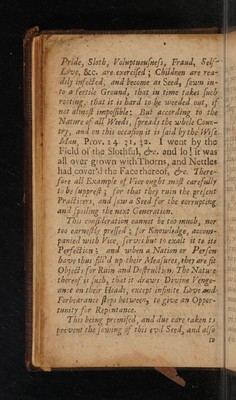 Pride, Sloth, Voluptuousness, Fraud, Self-
Love, &c. are exercised; Children are rea-
dily infected, and become as Seed, sown in-
to a fertile Ground, that in time takes such
rooting, that it is hard to be weeded out, if
not almost impossible: But according to the
Nature of all Weeds, spreads the whole Coun-
try, and on this occasion it is said by the Wise
Man, Prov. 24. 31, 32. I went by the
Field of the Slothful, &c. and lo! it was
all over grown with Thorns, and Nettles
had cover'd the Face thereof, &c. There-
fore all Example of Vice ought most carefully
to be supprest; for that they ruin the present
Practisers, and sow a Seed for the corrupting
and spoiling the next Generation.
This consideration cannot be too much, nor
too earnestly pressed; for Knowledge, accom-
panied with Vice, serves but to exalt it to its
Perfection: and when a Nation or Person
have thus fill'd up their Measures, they are fit
Objects for Ruin and Destruction. The Nature
thereof is such, that it draws Divine Venge-
ance on their Heads, except infinite Love and
Forbearance steps between, to give an Oppor-
tunity for Repentance.
This being premised, and due care taken to
prevent the sowing of this evil Seed, and also
to